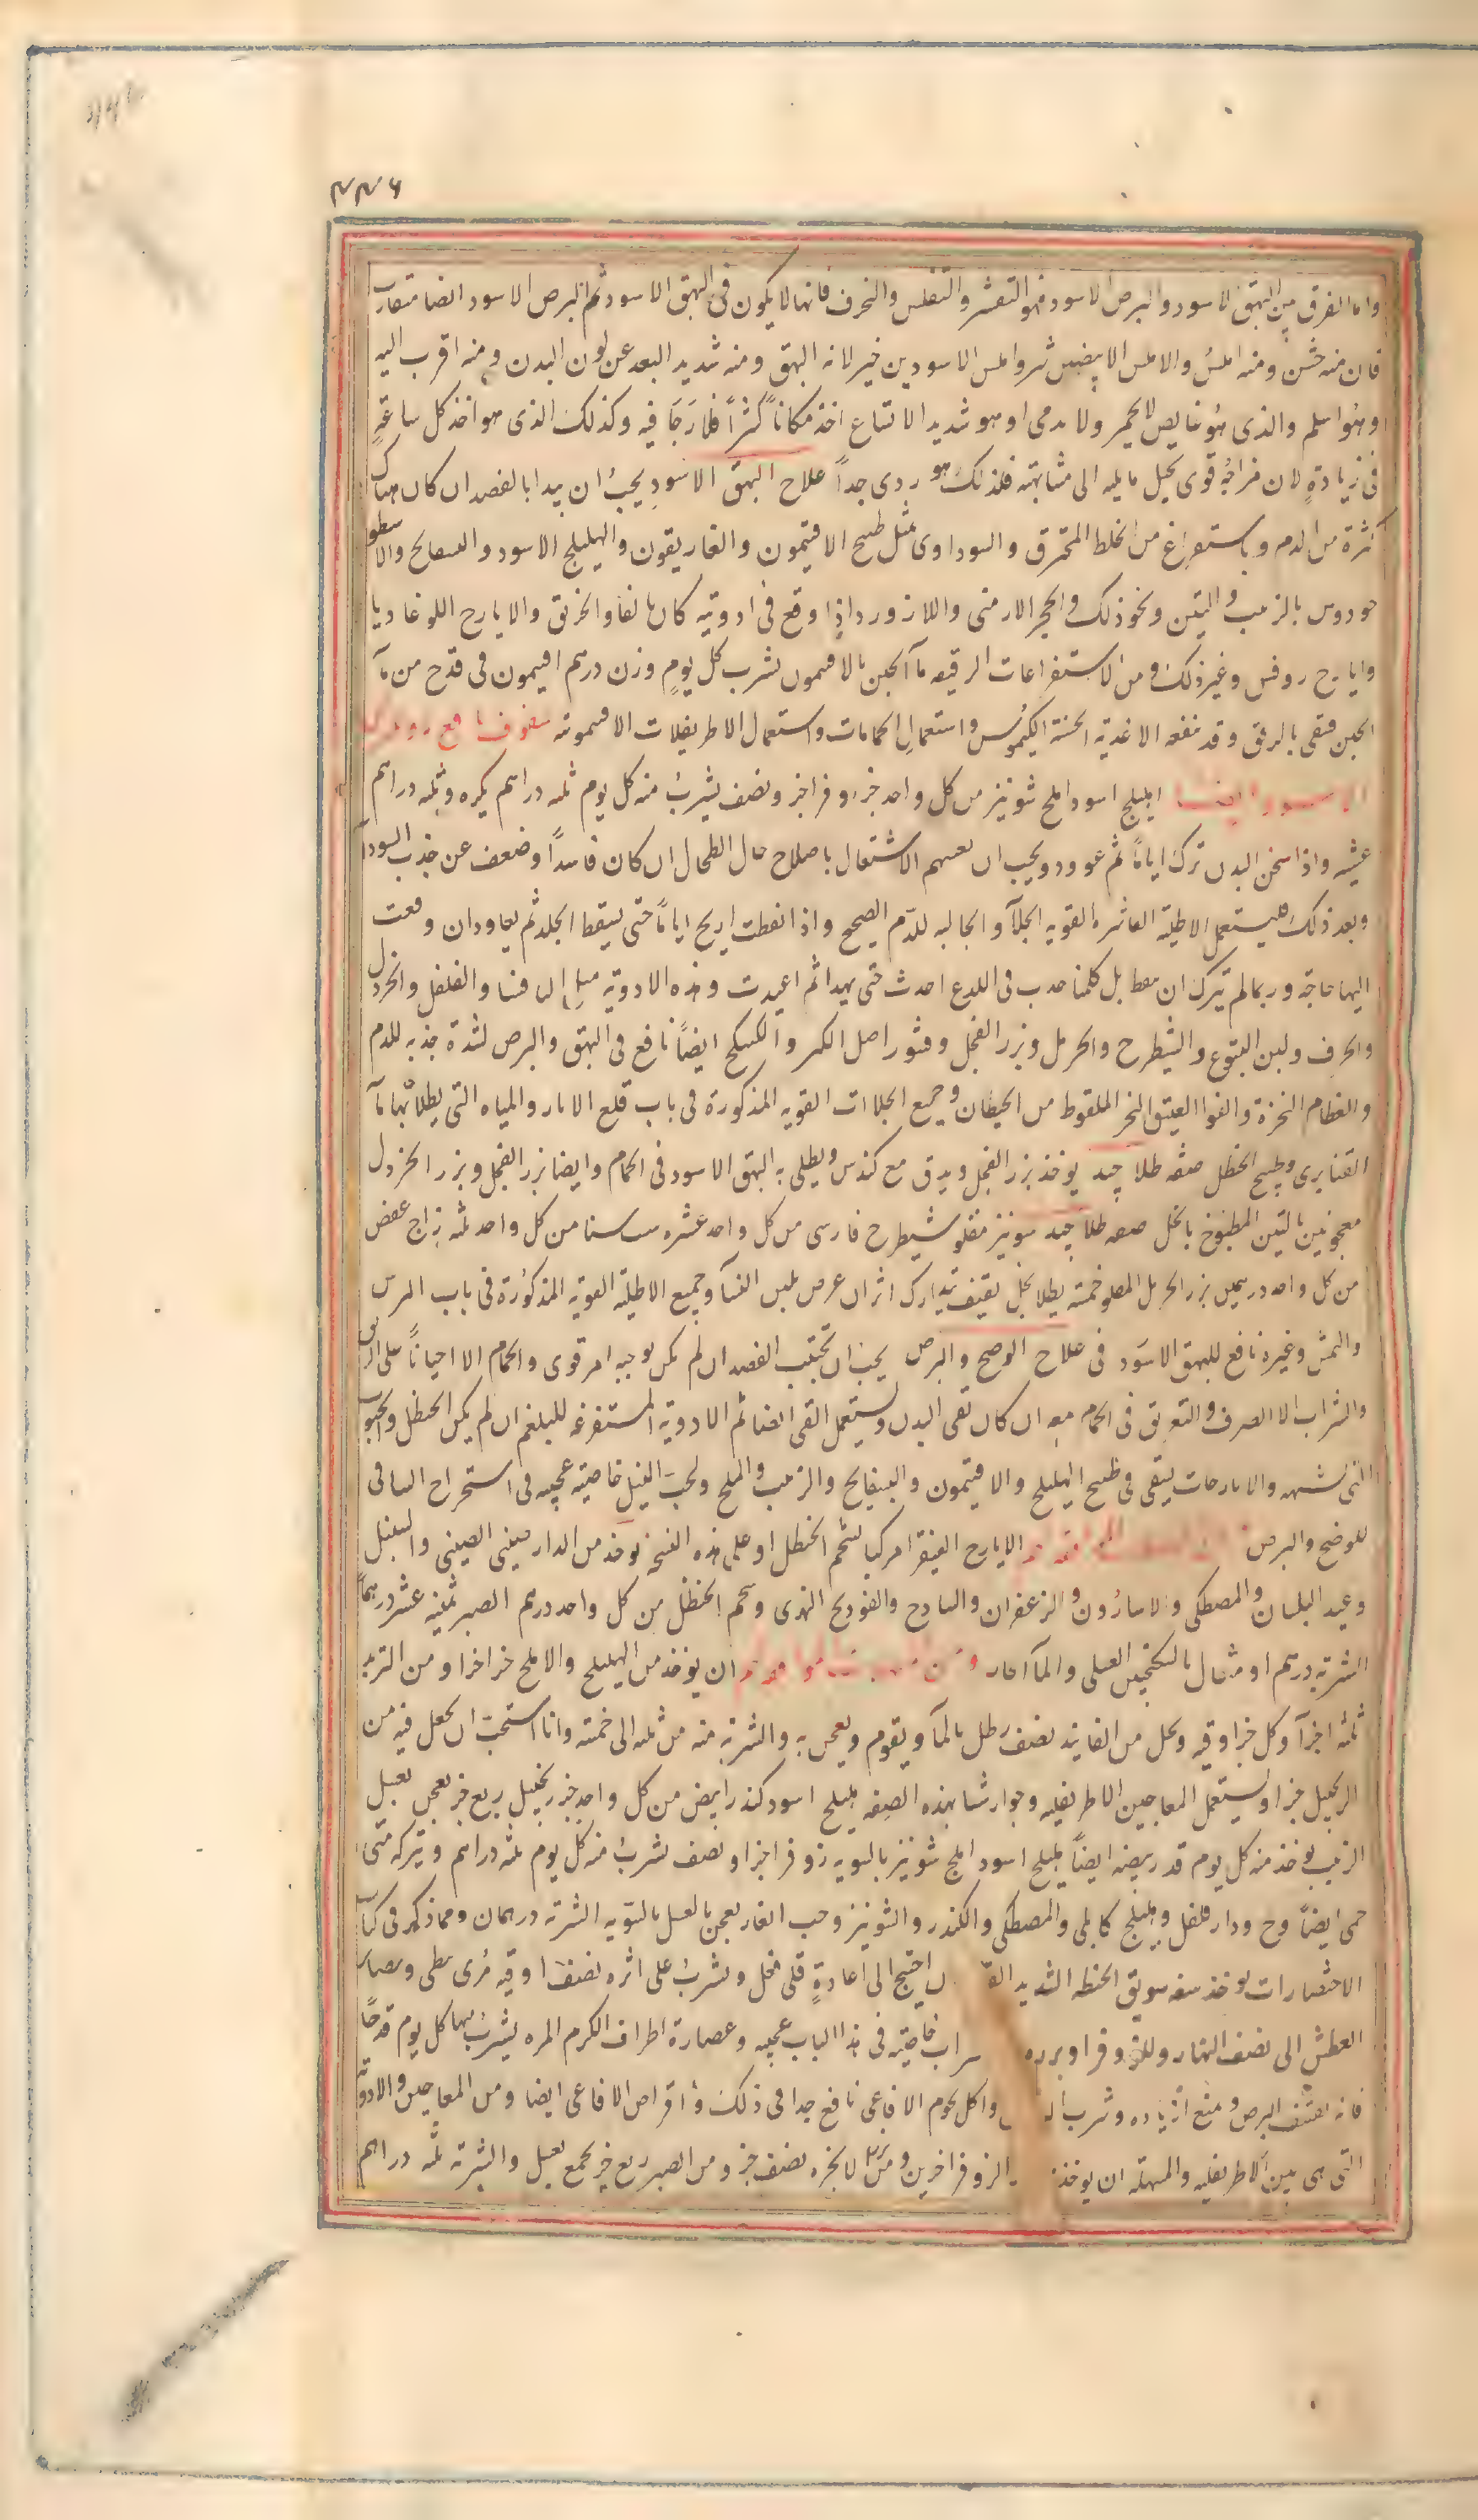 ۴۳۶
واما الفرق بين البهق الاسود والبرص الاسود فهو التقشر والتفلس والخرف فانها لا يكون فى البهق الاسود ثم البرص الاسود ايضا متفاوت
فان منه خشن ومنه املس والاملس الابيضين شر واملس الاسودين خير لانه البهق ومنه شديد البعد عن لون البدن ومنه اقرب اليه
وهو اسلم والذى هو غايص لا يحمر ولا يدمى او هو شديد الاتساع اخذ مكاناً كثيراً فلا رجا فيه وكذلك الذى هو اخذ كل ساعة
فى زيادة لان مزاجه قوى يحيل ما يليه الى مشابهته فلذلك هو ردى جداً علاج البهق الاسود يجب ان يبدا بالفصد ان كان هناك
كثرة من الدم وباستفراغ من الخلط المحترق والسوداوى بمثل طبيخ الافتيمون والغاريقون والهليلج الاسود والبسفايج والاسطو
خودوس بالزبيب والتين ونحو ذلك والحجر الارمنى واللازورد اذا وقع فى ادويته كان نافعا والخربق والايارج اللوغاديا
وايارج روفس وغير ذلك ومن الاستفراغات الرقيقه مآ الجبن بالافتيمون يشرب كل يوم وزن درهم افتيمون فى قدح من مآ
الجبن فينقى بالرفق وقد ينفعه الاغذية الحسنة الكيموس واستعمال الحمامات واستعمال الاطريفلات الافتيمونية سفوف نافع
الاسود وايضا اهليلج اسود املج شونيز من كل واحد جزء زوفرا جزء ونصف يشرب منه كل يوم ثلثه دراهم بكره وثلثه دراهم
عشيه واذا سخن البدن ترك اياماً ثم عوود ويجب ان يعنهم الاشتغال باصلاح حال الطحال ان كان فاسداً وضعف عن جذب السودآ
وبعد ذلك فيستعمل الاطلية القاشره القويه الجلآ والجالبه للدم الصحيح واذا نفطت اريح اياماً حتى يسقط الجلد ثم يعاودان وقعت
اليها حاجة وربما لم يترك ان تنفط بل كلما حدث فى اللدغ احدث حتى يهدا ثم اعيدت وهذه الادوية مثل الثافسيا والفلفل والخردل
والحرف ولبن اليتوع والشيطرح والحرمل وبزر الفجل وقشور اصل الكبر والكبيكج ايضاً نافع فى البهق والبرص لشدة جذبه للدم
والعظام النخرة والفوا العتيق النخر الملقوط من الحيطان وجميع الجلاات القويه المذكورة فى باب قلع الاثار والمياه التى يطلا بها مآ
القنابرى وطبيخ الحنظل صفه طلا جيد يوخذ بزر الفجل ويدق مع كندس ويطلى به البهق الاسود فى الحمام وايضا بزر الفجل وبزر الخردل
معجونين بالتين المطبوخ بالخل صفه طلا جيد شونيز مقلو شيطرح فارسى من كل واحد عشره من كل واحد ثلثه زاج عفص
من كل واحد درهمين بزر الحرمل المقلو خمسة يطلا بخل ثقيف يتدارك اثر ان عرض بلبن النسآ وجميع الاطلية القوية المذكورة فى باب البرص
والنمش وغيره نافع للبهق الاسود فى علاج الوضح والبرص يجب ان تجتنب الفصد ان لم يكن يوجبه امر قوى والحمام الا احياناً على الريق
والشراب الا الصرف والتعريق فى الحمام معه ان كان نقى البدن ويستعمل القى ايضا ثم الادوية المستفرغة للبلغم ان لم يكن الحنظل والحبوب
التى تشبهه والايارجات يسقى فى طبيخ الهليلج والافتيمون والبسفايج والزبيب والملح ولحب النيل خاصية عجيبه فى استخراج الباقى
للوضح والبرص الايارج الفيقرا مركبا بشحم الحنظل او على هذه النسخه يوخذ من الدار صينى الصينى والسنبل
وعيد البلسان والمصطكى والاسارون والزعفران والسادج والفودنج النهرى وشحم الحنظل من كل واحد درهم الصبر ثمنية عشر درهماً
الشربة درهم او مثقال بالسكنجبين العسلى والمآ الحار ان يوخذ من الهليلج والاملج جزا جزا ومن التربد
ثلثه اجزآ وكل جزا وقيه ويحل من الفانيذ نصف رطل بالمآ ويقوم ويعجن به والشربة منه من ثلثه الى خمسة وانا استحب ان يجعل فيه من
الزنجبيل جزا ويستعمل المعاجين الاطريفليه وجوارشنا بهذه الصفه هليلج اسود كندر ابيض من كل واحد جزء زنجبيل ربع جزء يعجن بعسل
الزبيب يوخذ منه كل يوم قدر بيضه ايضاً هليلج اسود املج شونيز بالسويه زوفرا جزا ونصف يشرب منه كل يوم ثلثه دراهم ويتركه متى
حمى ايضاً وج ودار فلفل وهليلج كابلى والمصطكى والكندر والشونيز وحب الغار يعجن بالعسل بالسوية الشربة درهمان ومما ذكر فى كتاب
الاختصارات يوخذ سفه سويق الحنطه الشديد ان احتيج الى اعادة قلى فعل ويشرب على اثره نصف اوقيه مرى نبطى ويصابر
العطش الى نصف النهار وللزوفرا وبزره خاصية فى هذا الباب عجيبه وعصارة اطراف الكرم المره يشرب بها كل يوم قدحاً
فانه يقشف البرص ويمنع ازدياده وشرب واكل لحوم الافاعى نافع جدا فى ذلك واقراص الافاعى ايضا ومن المعاجين والادوية
التى هى بين الاطريفليه والمسهله ان يوخذ الزوفرا جزين ومن الابخره نصف جز ومن الصبر ربع جز يجمع بعسل والشربة ثلثه دراهم